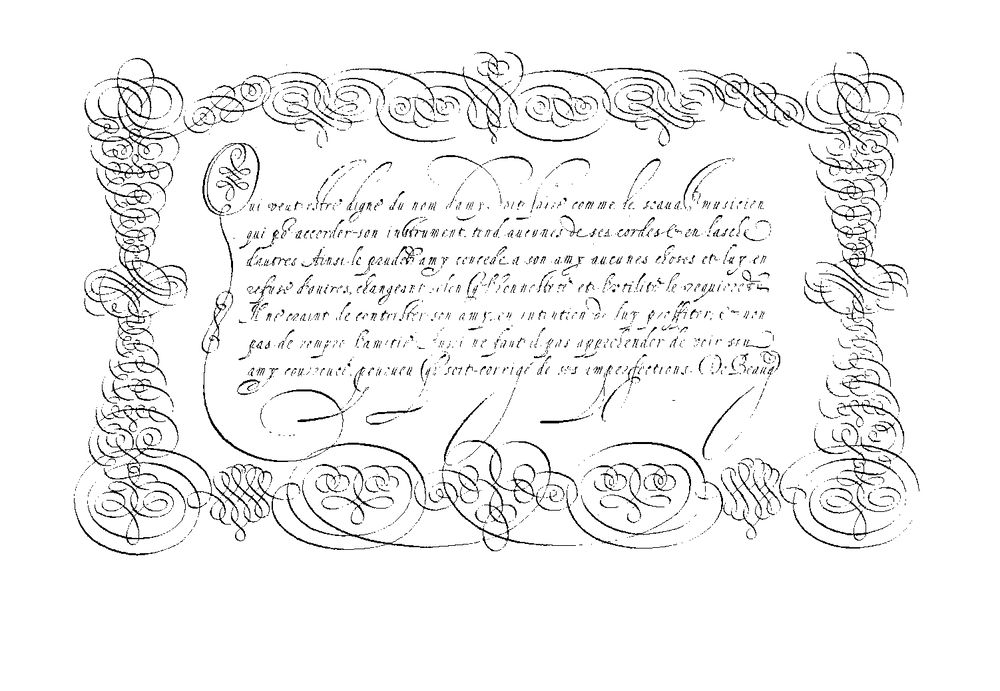 Qui veut estre digne du nom d'amy, doit faire comme le scauant musicien
qui po^r accorder son instrument, tend aucunes de ses cordes & en lasche
d'autres. Ainsi le prudent amy concede a son amy aucunes choses et luy en
refuse d'autres, changeant selon q^e l'honnesteté et l'vtilité le requierent
Il ne craint de contrister son amy, en intention de luy proffiter, & non
pas de rompre l'amitié. Aussi ne faut il pas apprehender de voir son
amy courroucé, pourueu q^il soit corrigé de ses imperfections. De Beaug^d